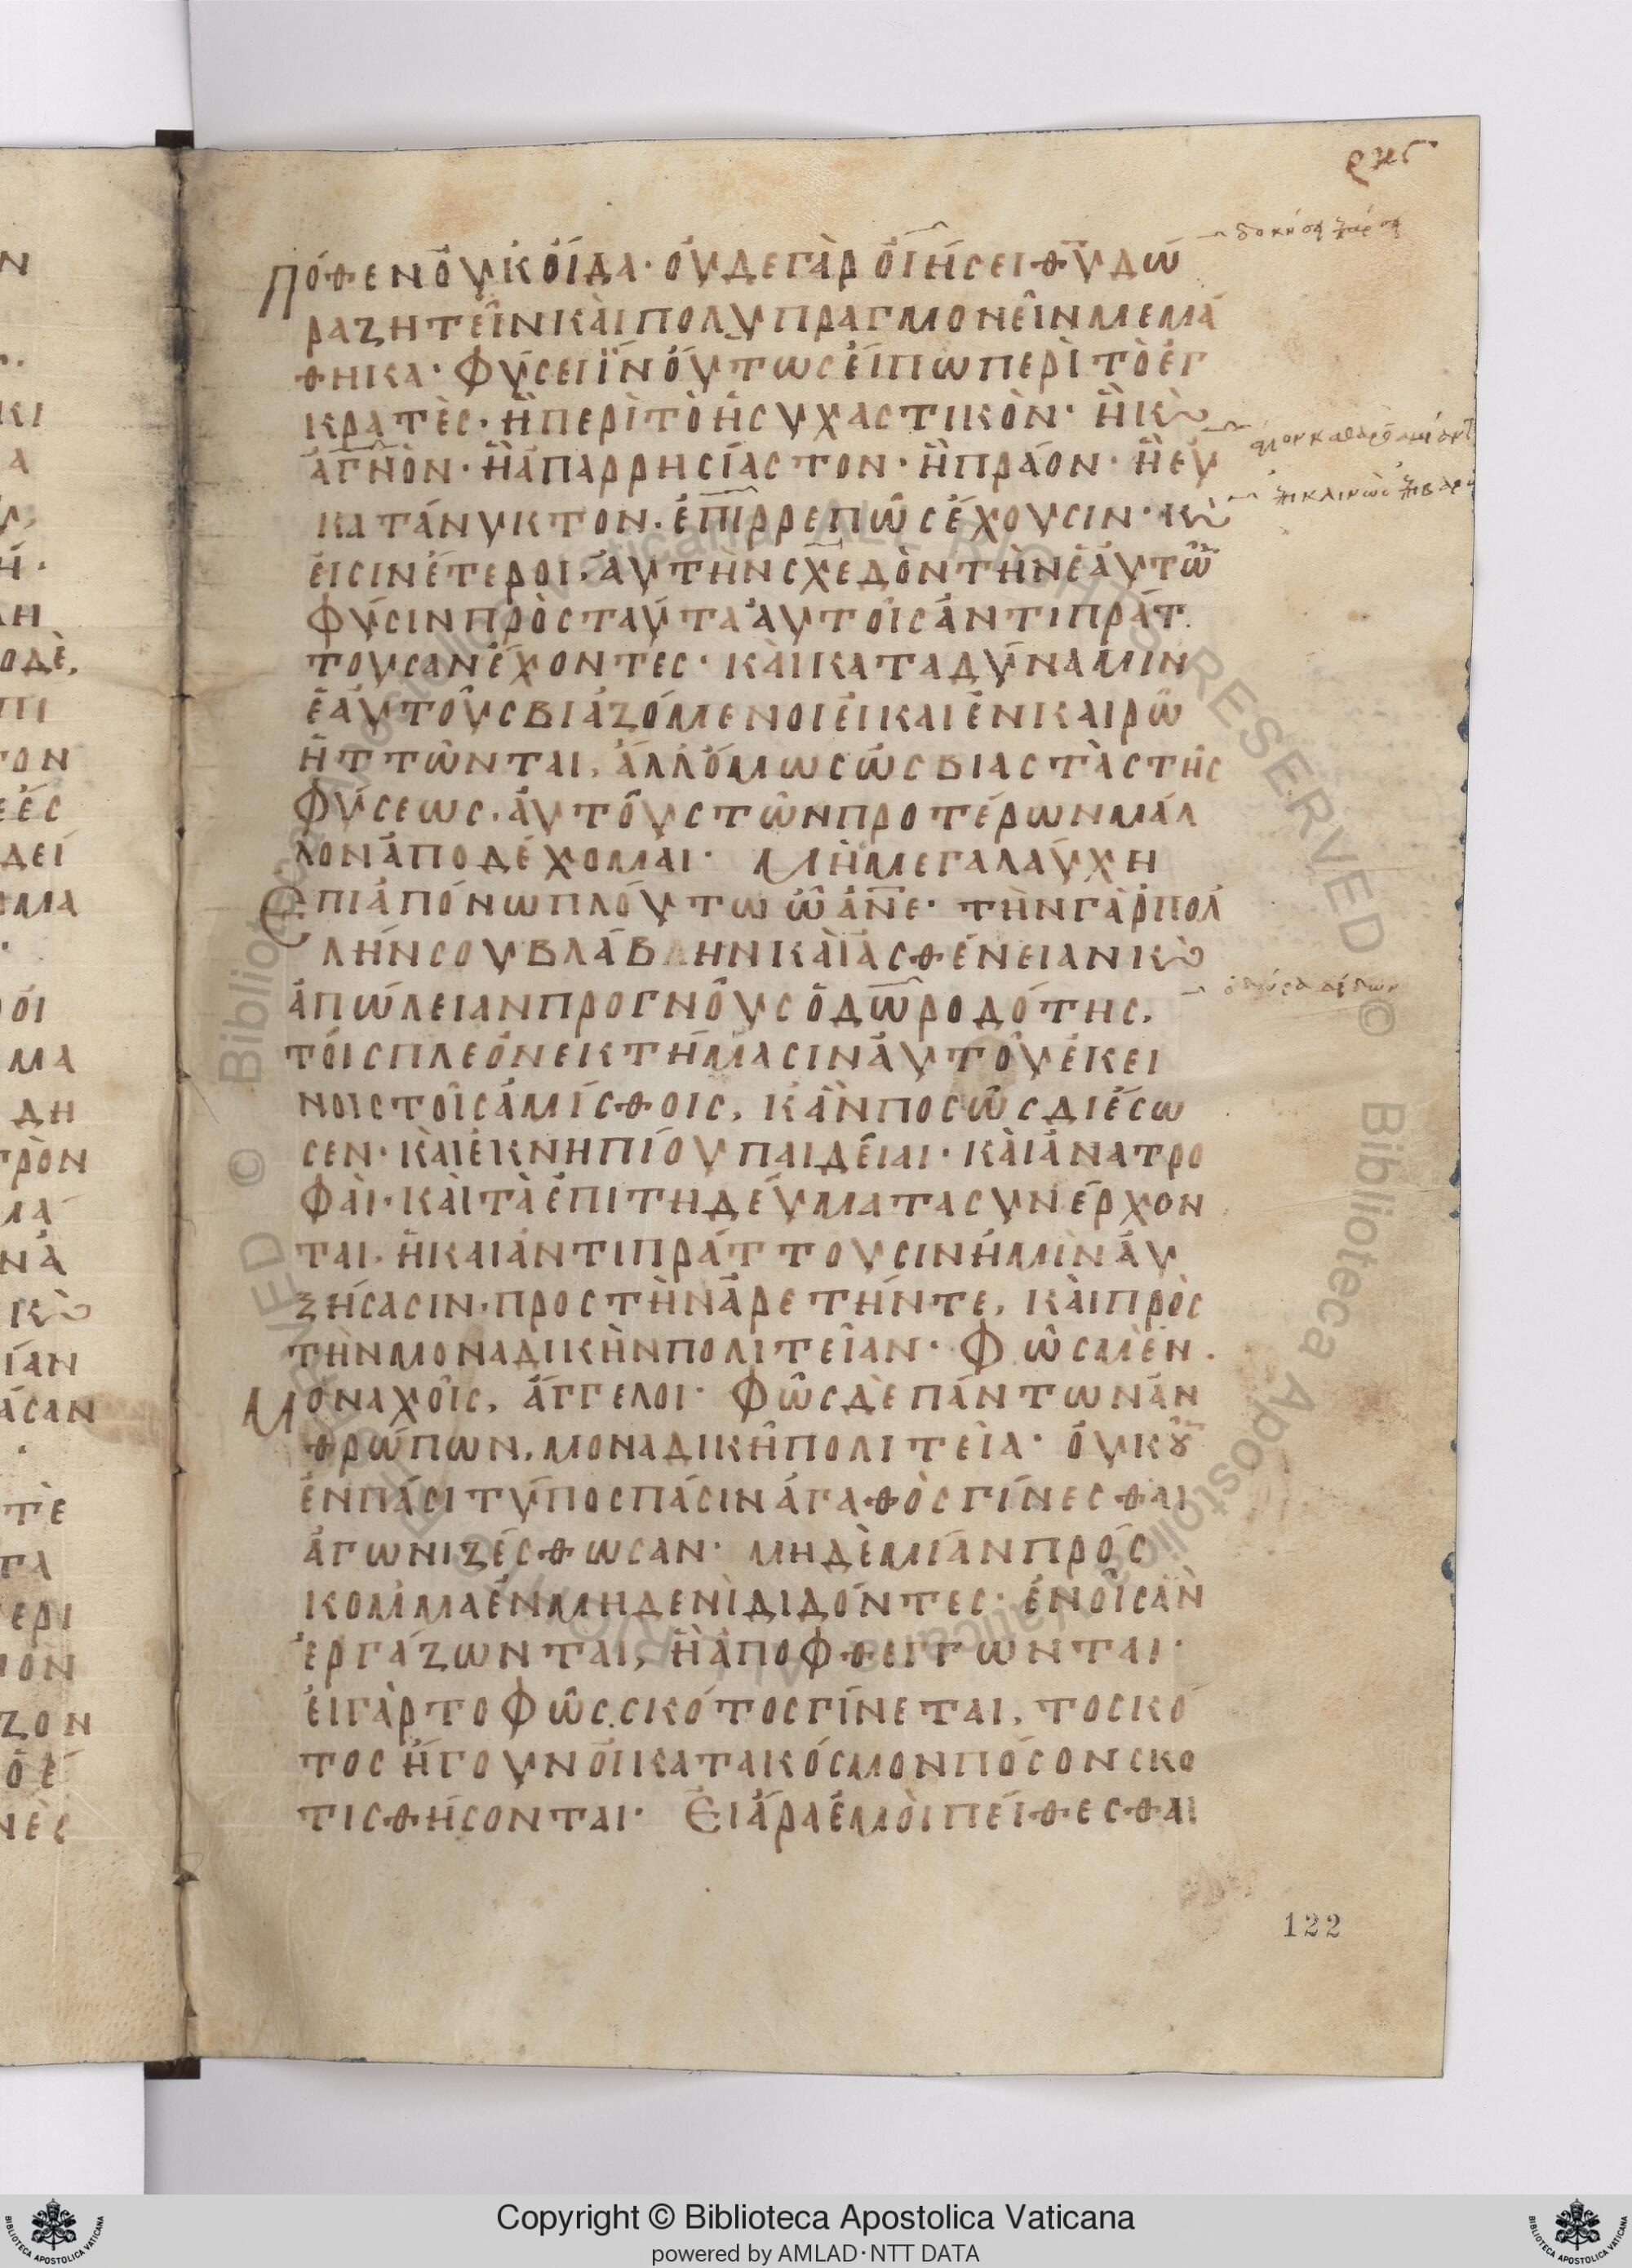 ρκϛ
ΠόθενοὐκοἶΔα· οὐΔεγὰροἰήσειΘ͞Υδώ
ραζητεῖνκαὶπολυπραγμονεῖνμεμά
θηκα· φύσειἵνοὕτωςεἴπωπερὶτὸἐγ
κρατὲς· ἢπερὶτὸἡσυχαστικὸν· ἢκ̀
ἁγνὸν· ἢἀπαρρησίαστον· ἢπρᾶον· ἢεὐ
κατάνυκτον. ἐπιρρεπῶςἔχουσιν· κ̀
εἰσὶνἕτεροι, αὐτὴνσχεδὸντὴνἑαυτῶ̅
φύσινπρὸςταῦτααὐτοῖςἀντιπράτ
τουσανἔχοντες· καὶκαταδύναμιν
ἑαυτοὺςβιαζόμενοιεἰκαιἐνκαιρῶ
ἡττῶνται, ἀλλ᾽ὅμωςὡςβιαστὰςτῆς
φύσεως. αὐτοὺςτῶνπροτέρωνμᾶλ
λονἀποδέχομαι· Μὴμεγαλαύχη
Ἐπιἀπόνωπλούτωὦἄ̅ν̅ε̅· τὴνγὰρπολ
λήνσουβλάβηνκαὶἀσθένειανκ̀
ἀπώλειανπρογνοὺςὁδωροδότης,
τοῖςπλεονεκτήμασιναὐτοῦἐκεί
νοιςτοῖςἀμίσθοις, κἂνποσῶςδιέσω
σεν· καὶἐκνηπίουπαιδεῖαι· καὶἀνατρο
φαὶ· καὶτὰἐπιτηδεύματασυνέρχον
ται, ἢκαιἀντιπράττουσινἡμὶναὐ
ξήσασιν· προςτὴνἀρετήντε, καὶπρὸς
τὴνμοναδικὴνπολιτεῖαν· Φῶςμὲν
Μοναχοῖς, ἄγγελοι· φῶςδὲπάντωνἀν
θρώπων, μοναδικὴπολιτεὶα· οὐκοῦ̅
ἐνπᾶσιτύποςπᾶσινἀγαθὸςγίνεσθαι
ἀγωνιζέσθωσαν· μηδὲμίανπρόσ
κομμαἐνμηδενὶδιδόντες· ἐνοἷςἂν
ἐργάζωνται, ἢἀποφθεγγωνται·
εἰγὰρτοφῶς, σκότοςγίνεται, τοσκό
τοςἤγουνοἱκατακόσμονπόσονσκο
τισθήσονται· Εἰἄραἐμοὶπείθεσθαι
122
Copyright © Biblioteca Apostolica Vaticana
powered by AMLAD·NTT DATA